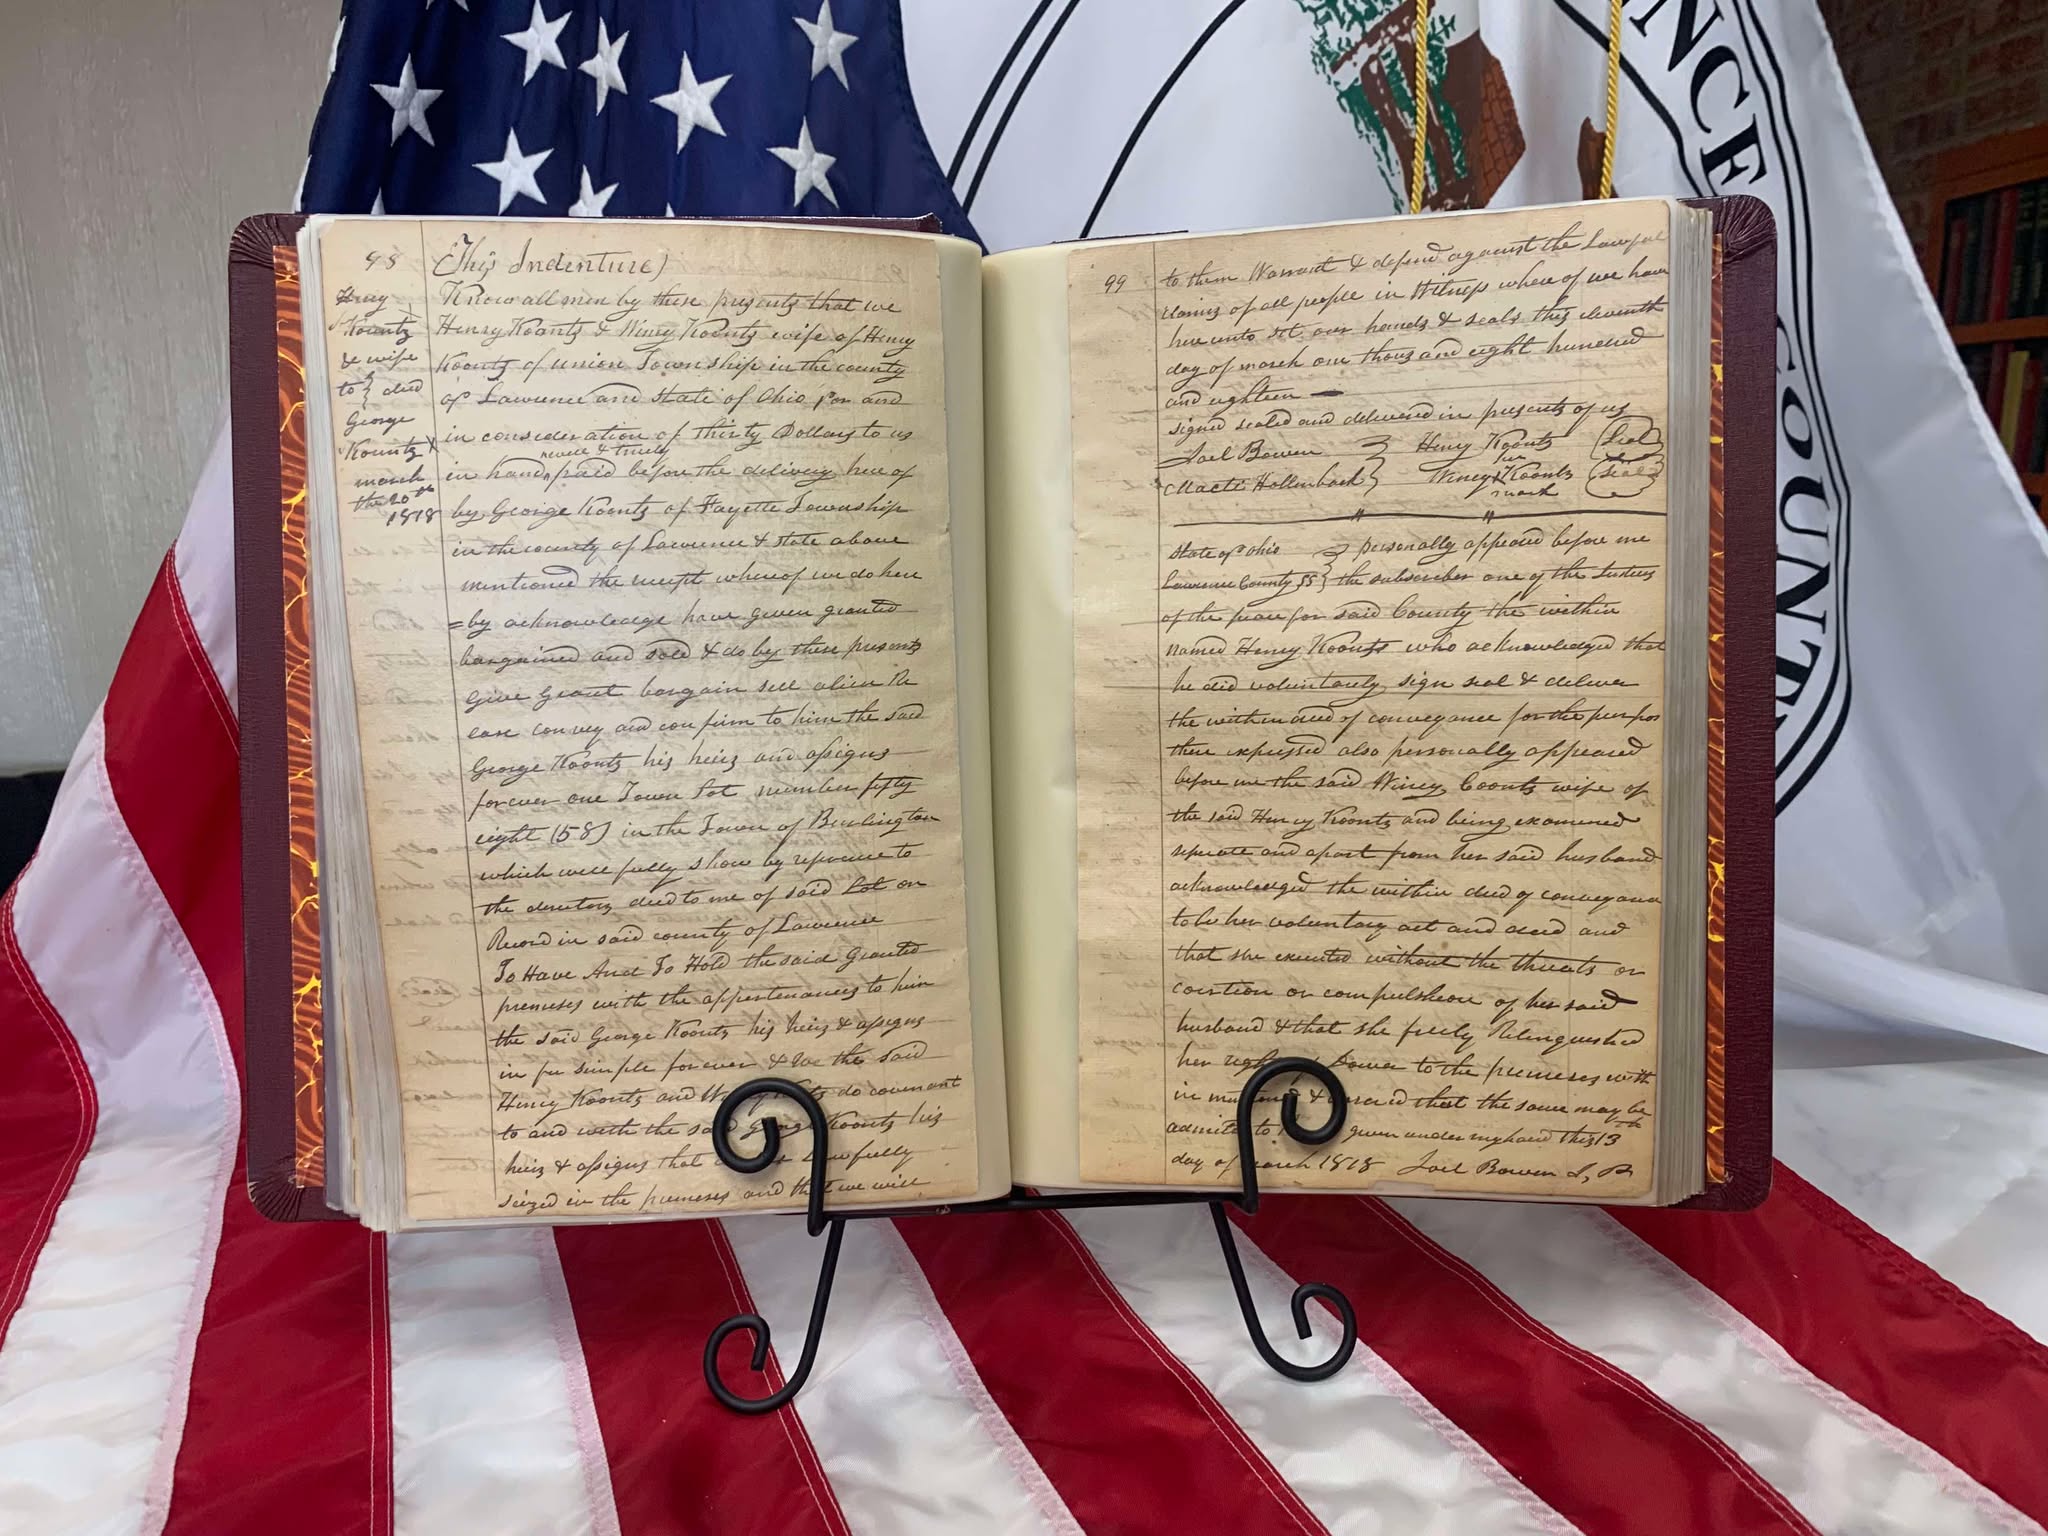 98 (This Indenture)
Henry
Koontz
& wife
to } deed
George
Koontz
march
the 20th
1818
Know all men by these presents that we
Henry Koontz & Winey Koontz wife of Henry
Koontz of union Township in the county
of Lawrence and State of Ohio for and
in consideration of Thirty Dollars to us
in hand paid before the delivery here of
by George Koontz of Fayette Township
in the county of Lawrence & State above
mentioned the receipt whereof we do here
=by acknowledge have given granted
bargained and sold & do by these presents
Give Grant bargain sell alien Re
ease convey and confirm to him the said
George Koontz his heirs and assigns
forever one Town Lot number fifty
eight (58) in the Town of Burlington
which will fully show by reference to
the deed to me of said Lot on
Record in said county of Lawrence
To Have And To Hold the said Granted
premeses with the appertenances to him
the said George Koontz his heirs & assigns
in fee simple forever & We the said
Henry Koontz and do covenant
to and with the said George Koontz his
heirs & assigns that Lawfully
seized in the premeses and that we will
99
to them Warrant & defend against the Lawful
claims of all people in Witness where of we have
here unto set our hands & seals this eleventh
day of march one thousand eight hundred
and eighteen
signed sealed and delivered in presents of us
Joel Bowen } Henry Koontz Seal
her
Hollenback } Winey X Koontz Seal
mark
State of Ohio } personally appeared before me
Lawrence County SS } the subscriber one of the Justices
of the peace for said County the within
named Henry Koontz who acknowledged that
he did voluntarily sign seal & deliver
the within deed of conveyance for the purpos
there expressed also personally appeared
before me the said Winey Coontz wife of
the said Henry Koontz and being examened
seperate and apart from her said husband
acknowledged the within deed of conveyance
to be her voluntary act and deed and
that she executed without the threats or
coertion or compulsheon of her said
husband & that she freely Relinquished
her right Dower to the premeses with
in that the same may be
admited to given under my hand this 13th
day of march 1818 Joel Bowen J, P.
NCE COUNT